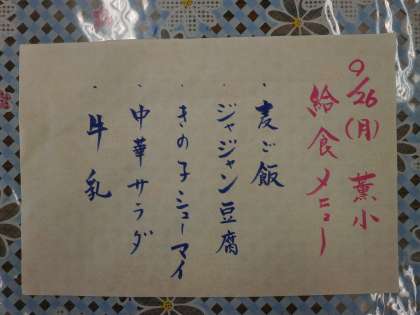 9/26(月) 薫小
給食メニュー
・麦ご飯
・ジャジャン豆腐
・きの子シューマイ
・中華サラダ
・牛乳